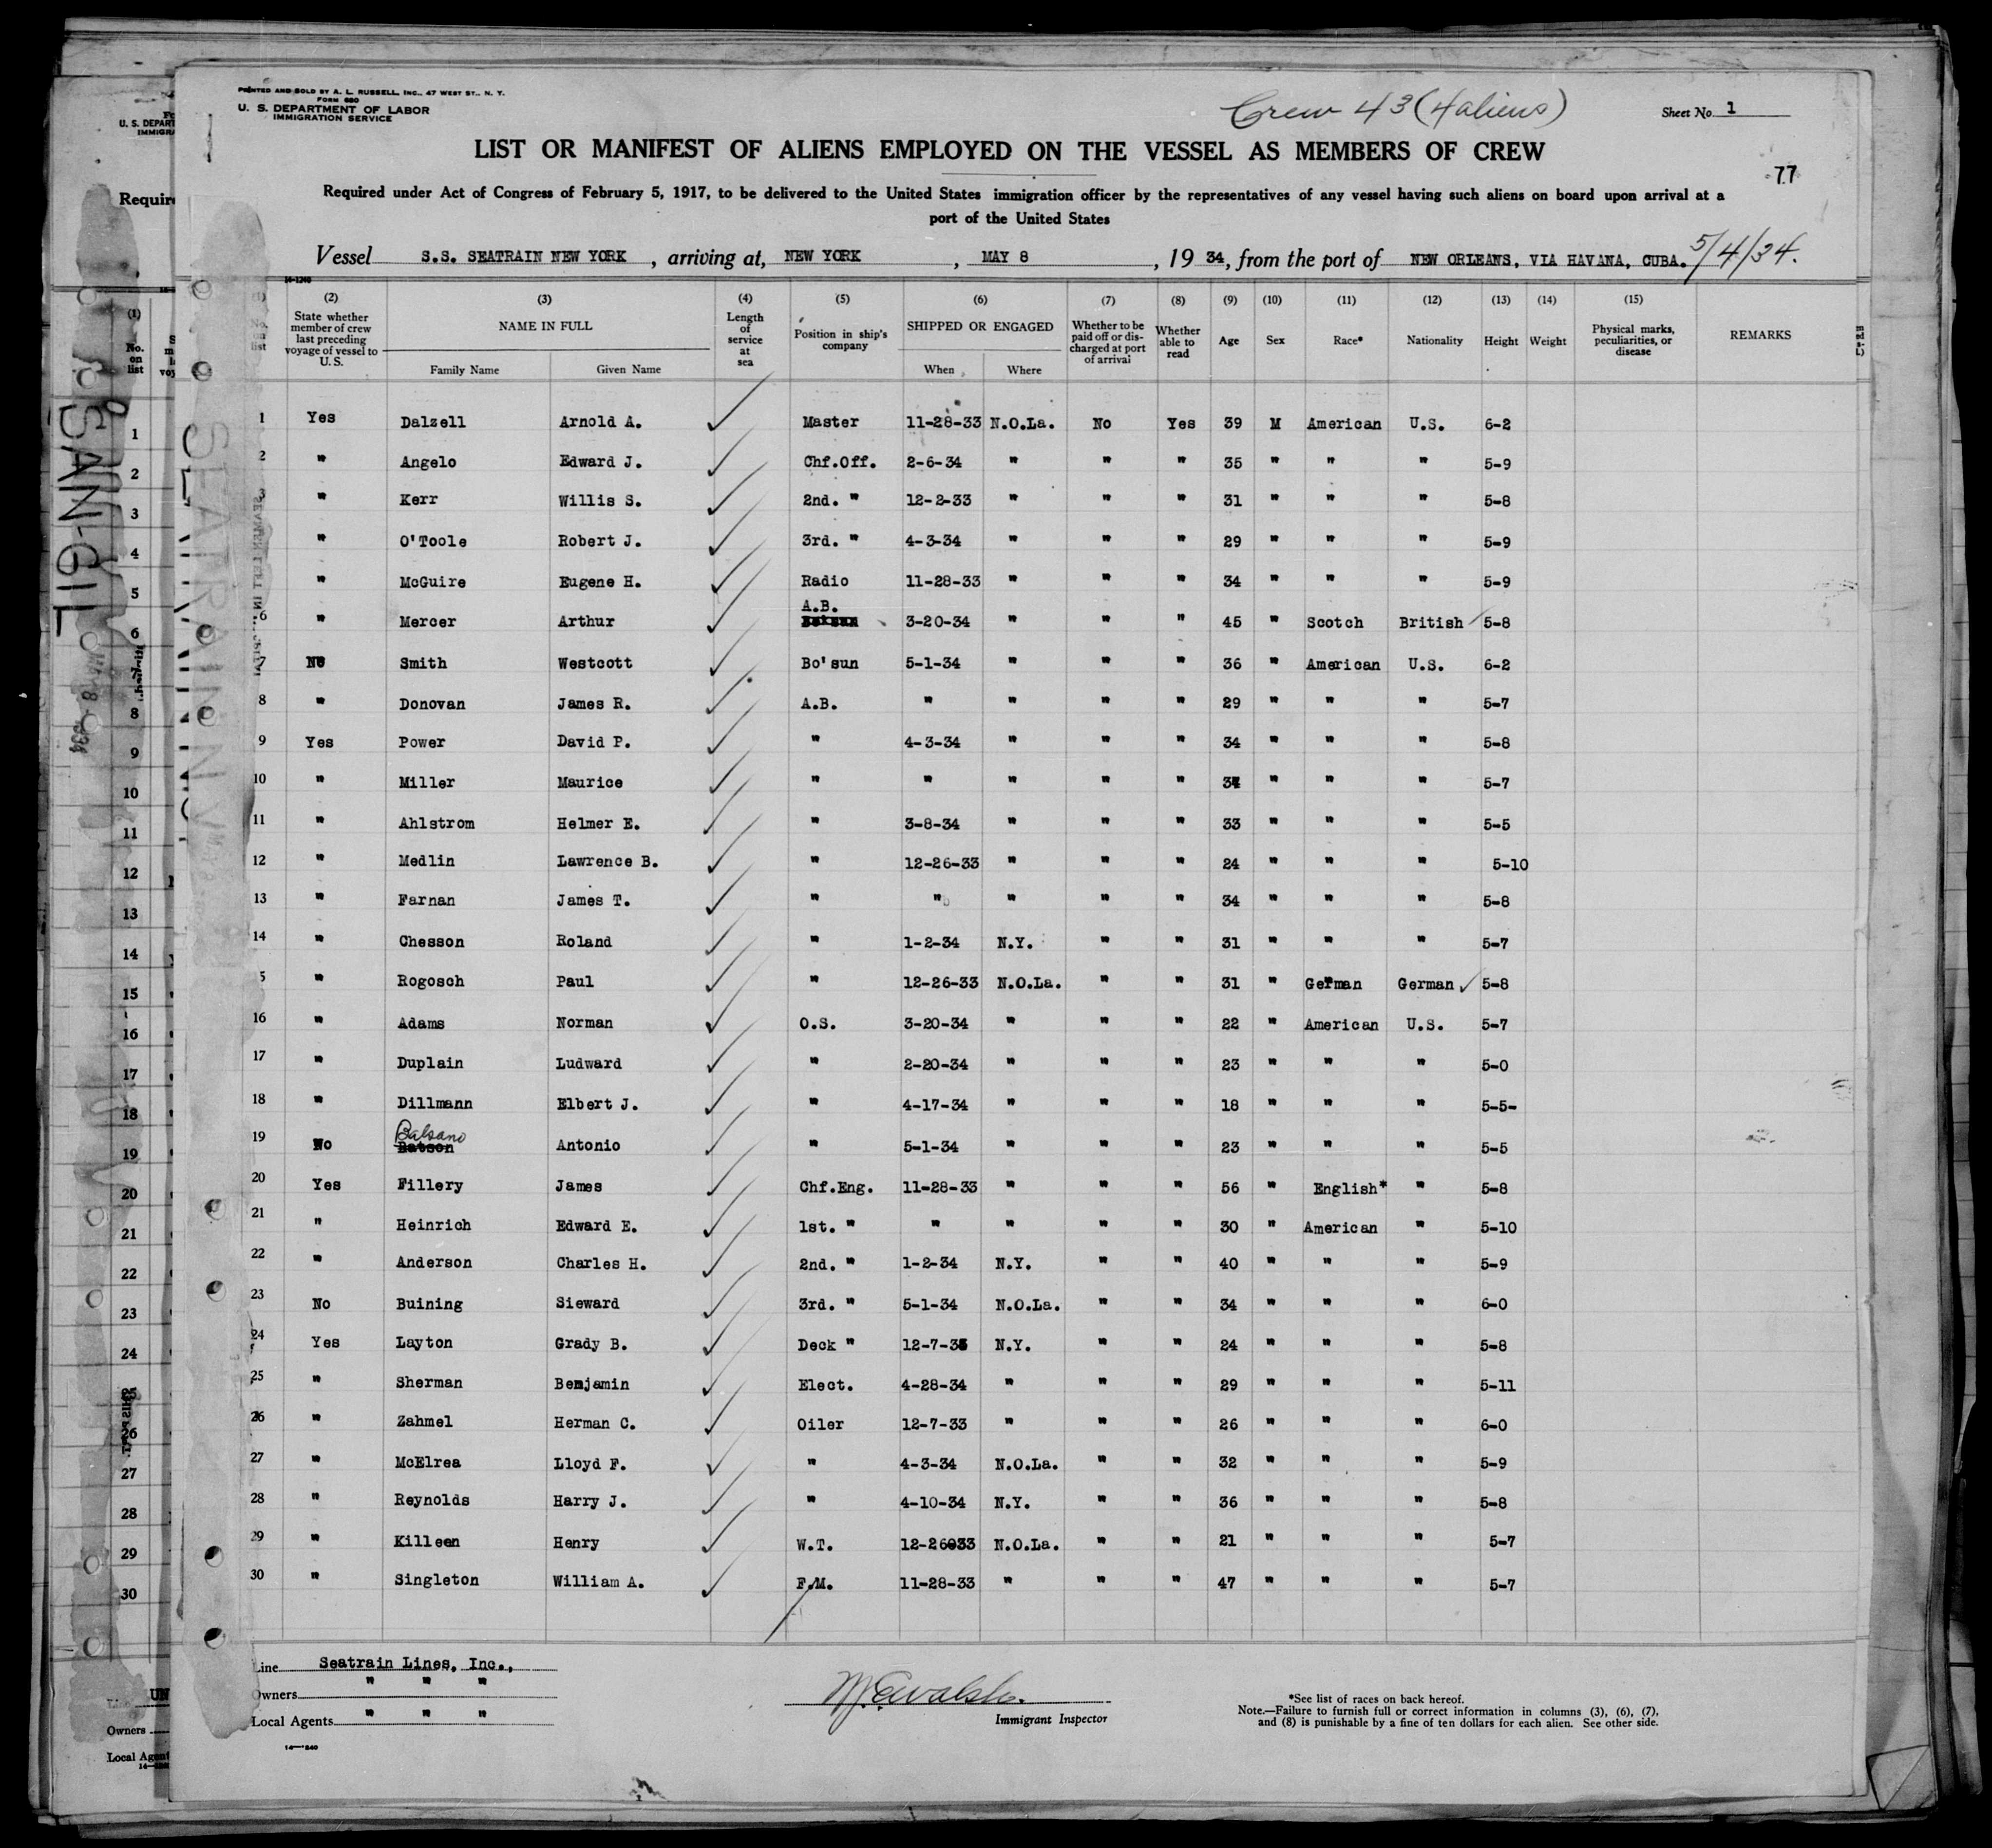 PRINTED AND SOLD BY A. L. RUSSELL, INC., 47 WEST ST., N. Y.
FORM 680
U. S. DEPARTMENT OF LABOR
IMMIGRATION SERVICE
Crew 43 (4 aliens)
Sheet No. 1
LIST OR MANIFEST OF ALIENS EMPLOYED ON THE VESSEL AS MEMBERS OF CREW
77
Required under Act of Congress of February 5, 1917, to be delivered to the United States immigration officer by the representatives of any vessel having such aliens on board upon arrival at a
port of the United States
Vessel S.S. SEATRAIN NEW YORK, arriving at, NEW YORK, MAY 8, 19 34, from the port of NEW ORLEANS, VIA HAVANA, CUBA. 5/4/34.
(2) (3) (4) (5) (6) (7) (8) (9) (10) (11) (12) (13) (14) (15)
No. on list
State whether member of crew last preceding voyage of vessel to U. S.
NAME IN FULL
Family Name Given Name
Length of service at sea
Position in ship's company
SHIPPED OR ENGAGED
When Where
Whether to be paid off or discharged at port of arrival
Whether able to read
Age Sex Race* Nationality Height Weight
Physical marks, peculiarities, or disease
REMARKS
1 Yes Dalzell Arnold A. Master 11-28-33 N.O.La. No Yes 39 M American U.S. 6-2
2 " Angelo Edward J. Chf.Off. 2-6-34 " " " 35 " " " 5-9
3 " Kerr Willis S. 2nd. " 12-2-33 " " " 31 " " " 5-8
" O'Toole Robert J. 3rd. " 4-3-34 " " " 29 " " " 5-9
" McGuire Eugene H. Radio 11-28-33 " " " 34 " " " 5-9
6 " Mercer Arthur A.B. 3-20-34 " " " 45 " Scotch British 5-8
7 No Smith Westcott Bo'sun 5-1-34 " " " 36 " American U.S. 6-2
8 " Donovan James R. A.B. " " " " 29 " " " 5-7
9 Yes Power David P. " 4-3-34 " " " 34 " " " 5-8
10 " Miller Maurice " " " " " " " " 5-7
11 " Ahlstrom Helmer E. " 3-8-34 " " " 33 " " " 5-5
12 " Medlin Lawrence B. " 12-26-33 " " " 24 " " " 5-10
13 " Farnan James T. " " " " " 34 " " " 5-8
14 " Chesson Roland " 1-2-34 N.Y. " " 31 " " " 5-7
5 " Rogosch Paul " 12-26-33 N.O.La. " " 31 " German German 5-8
16 " Adams Norman O.S. 3-20-34 " " " 22 " American U.S. 5-7
17 " Duplain Ludward " 2-20-34 " " " 23 " " " 5-0
18 " Dillmann Elbert J. " 4-17-34 " " " 18 " " " 5-5-
19 No Balsano Batson Antonio " 5-1-34 " " " 23 " " " 5-5
20 Yes Fillery James Chf.Eng. 11-28-33 " " " 56 " English* " 5-8
21 " Heinrich Edward E. 1st. " " " " " 30 " American " 5-10
22 " Anderson Charles H. 2nd. " 1-2-34 N.Y. " " 40 " " " 5-9
23 No Buining Sieward 3rd. " 5-1-34 N.O.La. " " 34 " " " 6-0
24 Yes Layton Grady B. Deck " 12-7-33 N.Y. " " 24 " " " 5-8
25 " Sherman Benjamin Elect. 4-28-34 " " " 29 " " " 5-11
26 " Zahmel Herman C. Oiler 12-7-33 " " " 26 " " " 6-0
27 " McElrea Lloyd F. " 4-3-34 N.O.La. " " 32 " " " 5-9
28 " Reynolds Harry J. " 4-10-34 N.Y. " " 36 " " " 5-8
29 " Killeen Henry W.T. 12-26033 N.O.La. " " 21 " " " 5-7
30 " Singleton William A. F.M. 11-28-33 " " " 47 " " " 5-7
Line Seatrain Lines, Inc.,
Owners " " "
Local Agents " " "
M. E. Walsh
Immigrant Inspector
*See list of races on back hereof.
Note.—Failure to furnish full or correct information in columns (3), (6), (7),
and (8) is punishable by a fine of ten dollars for each alien. See other side.
SAN GIL
SEATRAIN N.Y.
(1)
No.
on
list
1
2
3
4
5
6
7
8
9
10
11
12
13
14
15
16
17
18
19
20
21
22
23
24
25
26
27
28
29
30
Owners
Local Agent